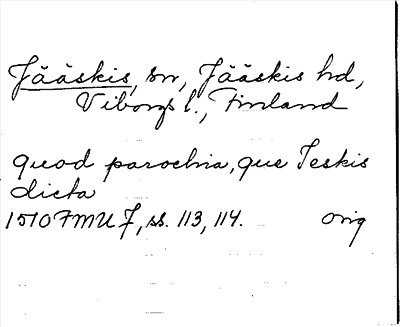 Jääskis, sn, Jääskis hd,
Viborgs l., Finland
quod parochia, que Jeskis
dicta
1510 FMU 7, ss. 113, 114. orig